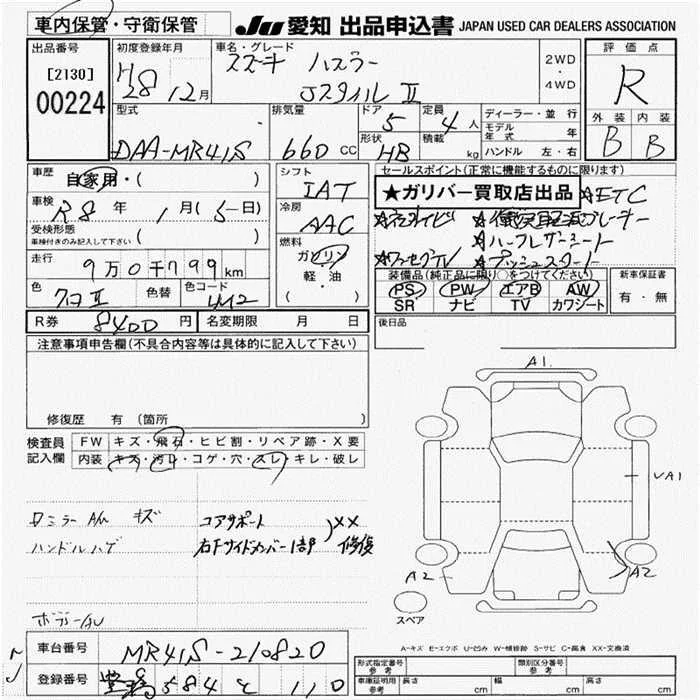 車内保管・守衛保管
JU 愛知 出品申込書 JAPAN USED CAR DEALERS ASSOCIATION
出品番号
[2130]
00224
初度登録年月
H28 12月
車名・グレード
スズキ ハスラー
JスタイルⅡ
2WD
・
4WD
評価点
R
外装 内装
B B
型式
DAA-MR41S
排気量
660 CC
ドア
5
形状
HB
定員
4 人
積載
kg
ディーラー・並行
モデル年式 年
ハンドル 左・右
車歴
自家用・( )
車検
R8 年 1月(5日)
受検形態
車検付きのみ記入して下さい ( )
走行
9万0千799km
色
クロⅡ
色替
色コード
シフト
IAT
冷房
AAC
燃料
ガソリン
軽・油
・( )
セールスポイント(正常に機能するものに限ります)
★ガリバー買取店出品 ★ETC
★ワンセグTV
★ハーフレザーシート
★プッシュスタート
装備品(純正品に限り○をつけてください)
PS PW エアB AW
SR ナビ TV カワシート
新車保証書
有・無
R券 8400円 名変期限 月 日
後日品
注意事項申告欄(不具合内容等は具体的に記入して下さい)
修復歴 有 (箇所 )
検査員記入欄
FW キズ・飛石・ヒビ割・リペア跡・X要
内装 キズ・汚レ・コゲ・穴・スレ・キレ・破レ
キズ
コアサポート
ハンドルハゲ
右Fサイドメンバー1部
XX
修復
A1.
A2
A2
スペア
A-キズ E-エクボ U-凹み W-補修跡 S-サビ C-腐食 XX-交換済
車台番号 MR41S-210820
登録番号
形式指定番号 参考
類別区分番号 参考
車庫証明用 参考
長さ cm 幅 cm 高さ cm